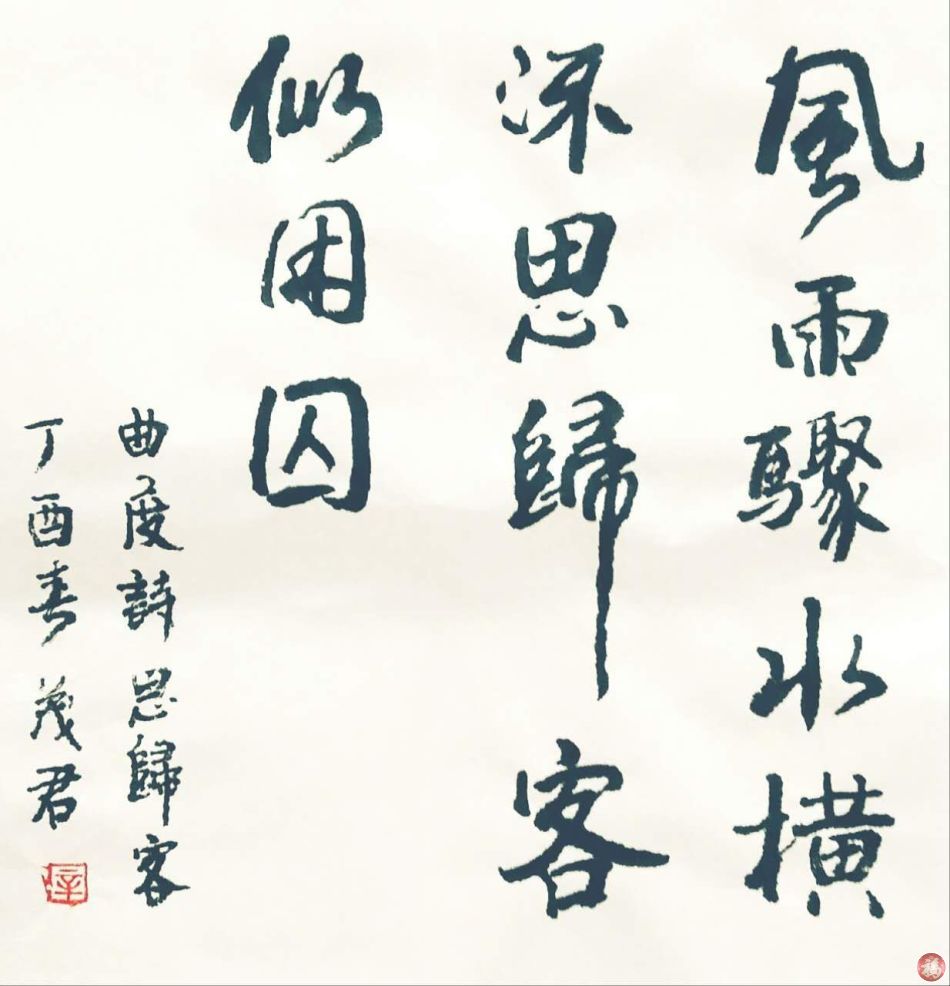 風雨驟水横
流思歸客
似困囚
曲度詩 思歸客
丁酉春 茂君
福